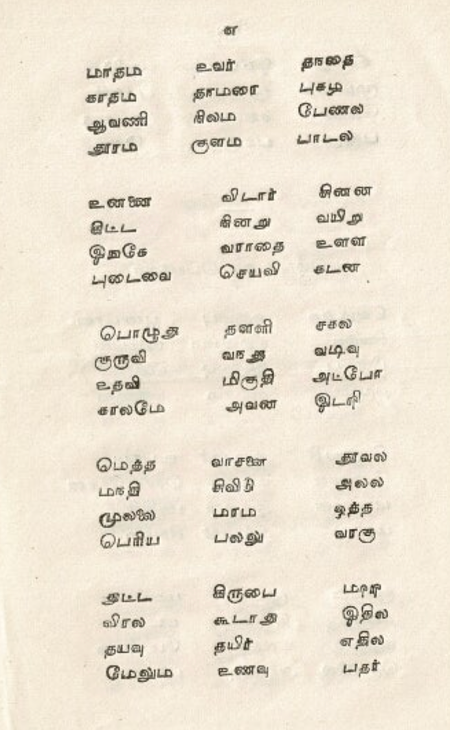 எ
மாதம உவர் தநதை
காதம தாமரை புகழ
ஆவணி நிலம பேணல
தூரம குளம பாடல
உனனை விடார் சினன
கிட்ட கிணறு வயிறு
இஙகே வராதை உளள
புடைவை செயவி கடன
பொழுது தளளி சகல
குருவி வநது வடிவு
உதவி மிகுதி அட்போ
காலமே அவன
மெத்த வாசனை தூவல
மநதி சிவிடு அலல
முலலை மரம ஒத்த
பெரிய பலலு வரகு
கிருபை
விரல கூடாது இதில
தயவு தயிர் எதில
மேலும உணவு பதர்